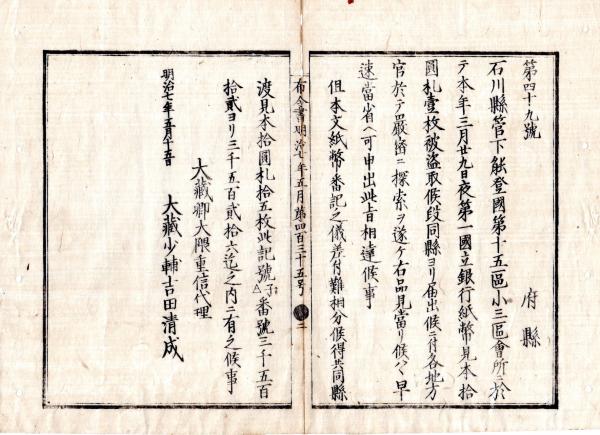 第四十九號
府縣
石川縣管下能登國第十五區小三區會所ニ於
テ本年三月廿九日夜第一國立銀行紙幣見本拾
圓札壹枚被盗取候段同縣ヨリ届出候ニ付各地方
官於テ嚴密ニ探索ヲ遂ケ右品見當リ候ハヽ早
速當省ヘ可申出此旨相達候事
但本文紙幣番記之儀差付難相分候得共同縣
布令書明治七年五月第四百三十五号
三
渡見本拾圓札拾五枚此記號 番號三千五百
拾貳ヨリ三千五百貳拾六迄之内ニ有之候事
大藏卿大隈重信代理
明治七年五月十五日
大藏少輔吉田清成